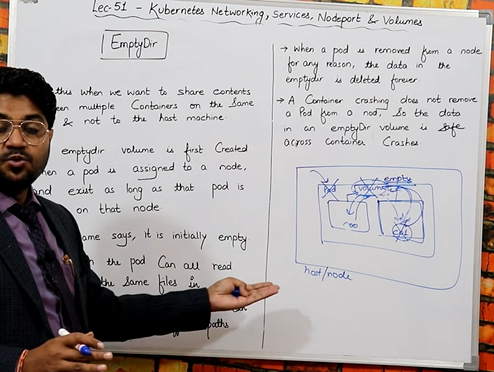 Lec-51 - Kubernetes Networking, Services, Nodeport & Volumes
EmptyDir
this when we want to share contents
multiple Containers on the Same
& not to the host machine
emptydir volume is first Created
a pod is assigned to a node,
exist as long as that pod is
on that node
says, it is initially empty
the pod Can all read
the Same files in
paths
→ When a pod is removed from a node
for any reason, the data in the
emptydir is deleted forever
→ A Container crashing does not remove
a Pod from a nod, So the data
in an emptyDir volume is safe
across Container Crashes
empty
volume
host/node